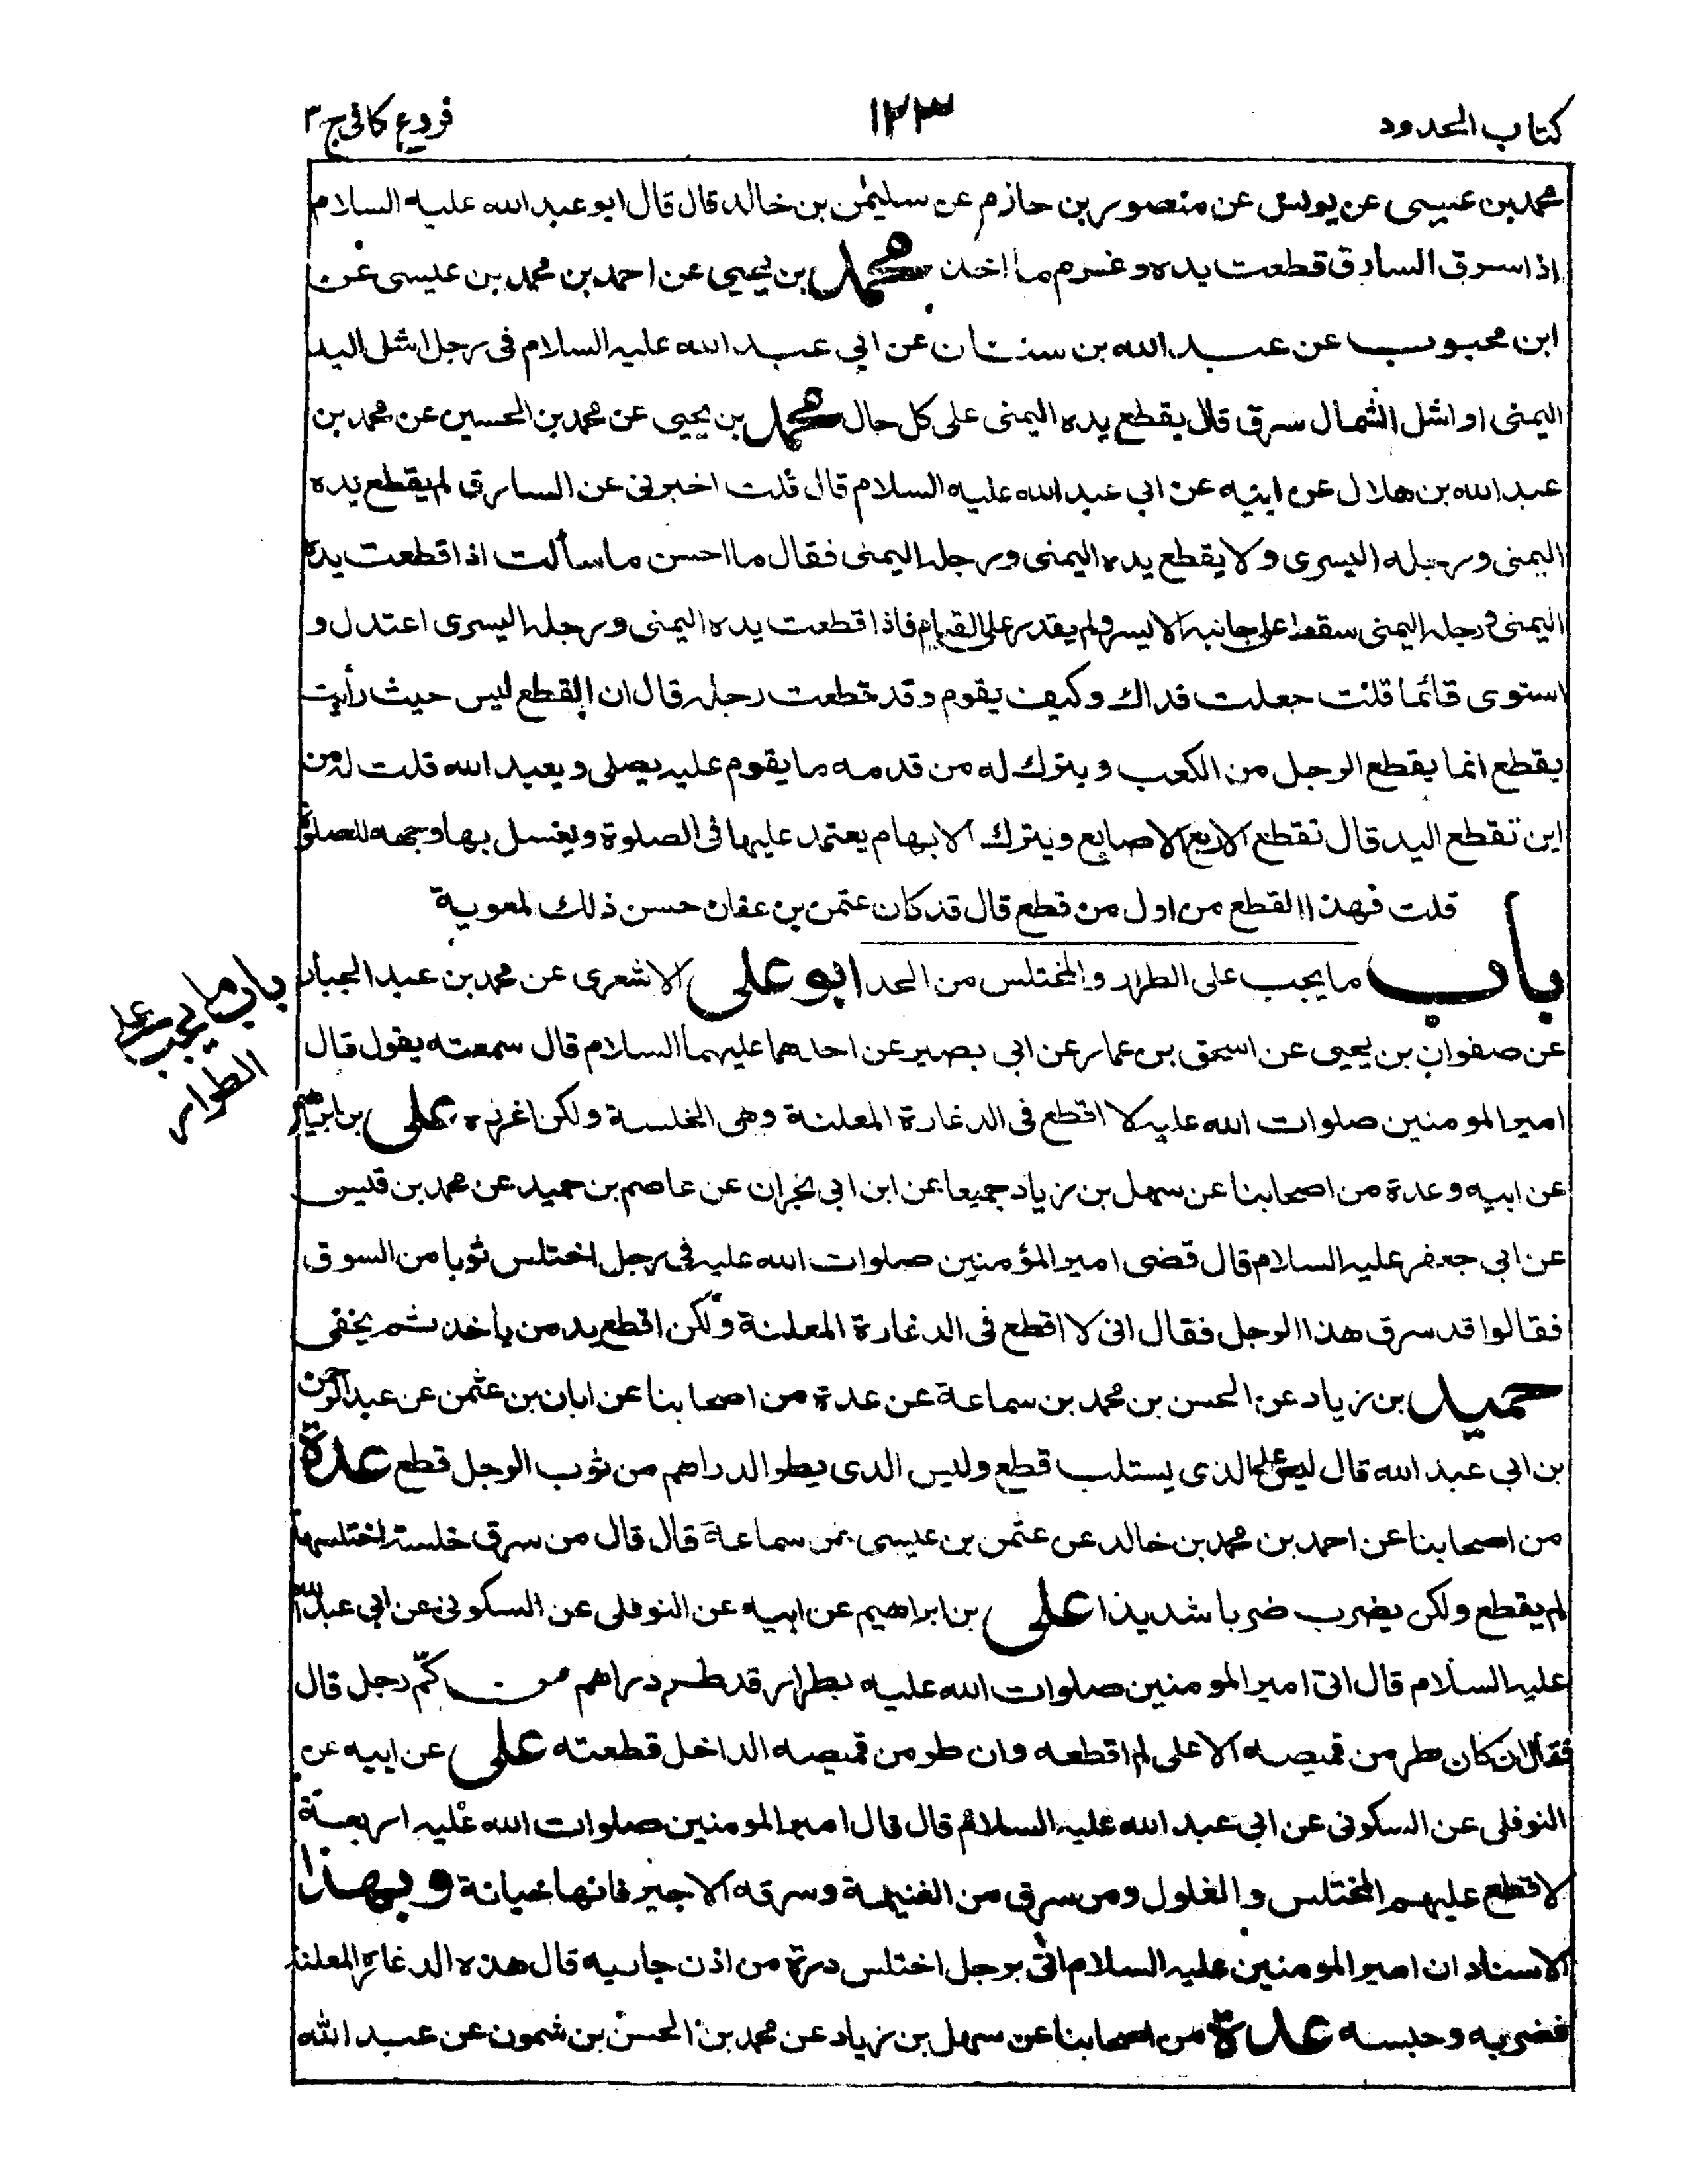 كتاب الحدود
١٢٣
فروع كافي ج ٣
محمد بن عيسى عن يونس عن منصور بن حازم عن سليمن بن خالد قال قال ابو عبد الله عليه السلام
اذا سرق السارق قطعت يده وغرم ما اخذ محمد بن يحيى عن احمد بن محمد بن عيسى عن
ابن محبوب عن عبد الله بن سنان عن ابي عبد الله عليه السلام في رجل اشل اليد
اليمنى او اشل الشمال سرق قال يقطع يده اليمنى على كل حال محمد بن يحيى عن محمد بن الحسين عن محمد بن
عبد الله بن هلال عن ابيه عن ابي عبد الله عليه السلام قال قلت اخبرني عن السارق لم يقطع يده
اليمنى ورجله اليسرى ولا يقطع يده اليمنى ورجله اليمنى فقال ما احسن ما سألت اذا قطعت يده
اليمنى ورجله اليمنى سقط على جانبه الايسر ولم يقدر على القيام فاذا قطعت يده اليمنى ورجله اليسرى اعتدل و
استوى قائما قلت جعلت فداك وكيف يقوم وقد قطعت رجله قال ان القطع ليس حيث رأيت
يقطع انما يقطع الرجل من الكعب ويترك له من قدمه ما يقوم عليه يصلي ويعبد الله قلت له من
اين تقطع اليد قال تقطع الاربع الاصابع ويترك الابهام يعتمد عليها في الصلوة ويغسل بها وجهه للصلوة
قلت فهذا القطع من اول من قطع قال قد كان عثمن بن عفان حسن ذلك لمعوية
باب ما يجب على الطرار والمختلس من الحد ابو علي الاشعري عن محمد بن عبد الجبار
باب ما يجب على
الطرار
عن صفوان بن يحيى عن اسحق بن عمار عن ابي بصير عن احدهما عليهما السلام قال سمعته يقول قال
امير المومنين صلوات الله عليه لا اقطع في الدغارة المعلنة وهي الخلسة ولكن اعزره علي بن ابرهيم
عن ابيه وعدة من اصحابنا عن سهل بن زياد جميعا عن ابن ابي نجران عن عاصم بن حميد عن محمد بن قيس
عن ابي جعفر عليه السلام قال قضى امير المؤمنين صلوات الله عليه في رجل اختلس ثوبا من السوق
فقالوا قد سرق هذا الرجل فقال اني لا اقطع في الدغارة المعلنة ولكن اقطع يد من ياخذ ثم يخفي
حميد بن زياد عن الحسن بن محمد بن سماعة عن عدة من اصحابنا عن ابان بن عثمن عن عبد الرحمن
بن ابي عبد الله قال ليس على الذي يستلب قطع وليس الذي يطر الدراهم من ثوب الرجل قطع عدة
من اصحابنا عن احمد بن محمد بن خالد عن عثمن بن عيسى عن سماعة قال قال من سرق خلسة اختلسها
لم يقطع ولكن يضرب ضربا شديدا علي بن ابراهيم عن ابيه عن النوفلي عن السكوني عن ابي عبد الله
عليه السلام قال اتي امير المومنين صلوات الله عليه بطرار قد طر دراهم من كم رجل قال
فقال ان كان طر من قميصه الاعلى لم اقطعه وان طر من قميصه الداخل قطعته علي عن ابيه عن
النوفلي عن السكوني عن ابي عبد الله عليه السلام قال قال امير المومنين صلوات الله عليه اربعة
لا قطع عليهم المختلس والغلول ومن سرق من الغنيمة وسرقه الاجير فانها خيانة وبهذا
الاسناد ان امير المومنين عليه السلام اتي برجل اختلس درة من اذن جاريه قال هذه الدغارة المعلنة
فضربه وحبسه عدة من اصحابنا عن سهل بن زياد عن محمد بن الحسن بن شمون عن عبد الله